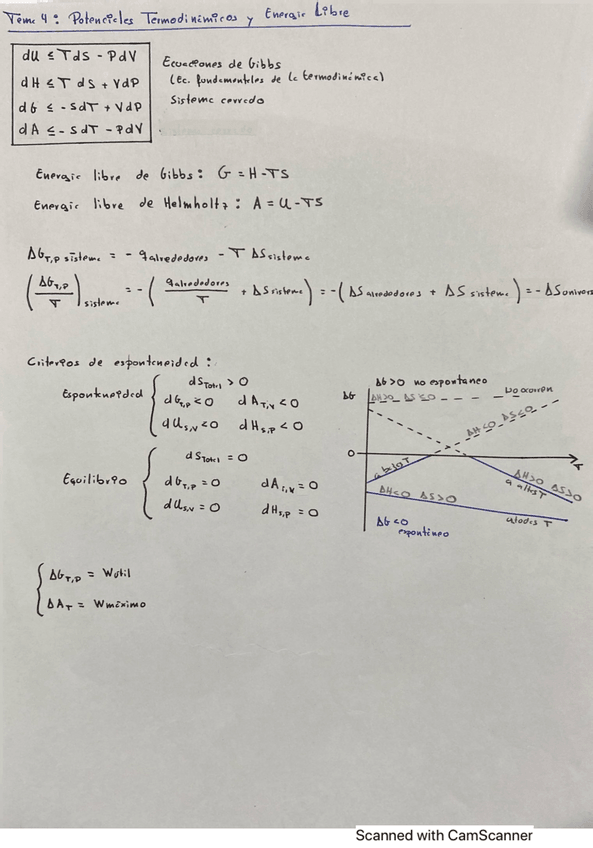 Tema 4: Potenciales Termodinámicos y Energía Libre
dU ≤ TdS - PdV
dH ≤ T dS + VdP
dG ≤ -SdT + VdP
dA ≤ -SdT - PdV
Ecuaciones de Gibbs
(Ec. fundamentales de la termodinámica)
Sistema cerrado
Energía libre de Gibbs: G = H-TS
Energía libre de Helmholtz: A = U-TS
ΔG_T,P sistema = - q alrededores - T ΔS sistema
(ΔG_T,P / T) sistema = -(q alrededores / T + ΔS sistema) = -(ΔS alrededores + ΔS sistema) = -ΔS univers
Criterios de espontaneidad:
Espontaneidad { dS Total > 0
dG_T,P < 0 dA_T,V < 0
dU_S,V < 0 dH_S,P < 0
Equilibrio { dS Total = 0
dG_T,P = 0 dA = 0
dU_S,V = 0 dH_S,P = 0
ΔG>0 no espontaneo
ΔG
ΔH>0 ΔS≤0
No ocurren
ΔH<0 ΔS≤0
0
T
a baja T
ΔH>0 ΔS>0
a altas T
ΔH<0 ΔS>0
a todas T
ΔG<0
espontáneo
{ ΔG_T,P = W útil
ΔA_T = W máximo
Scanned with CamScanner